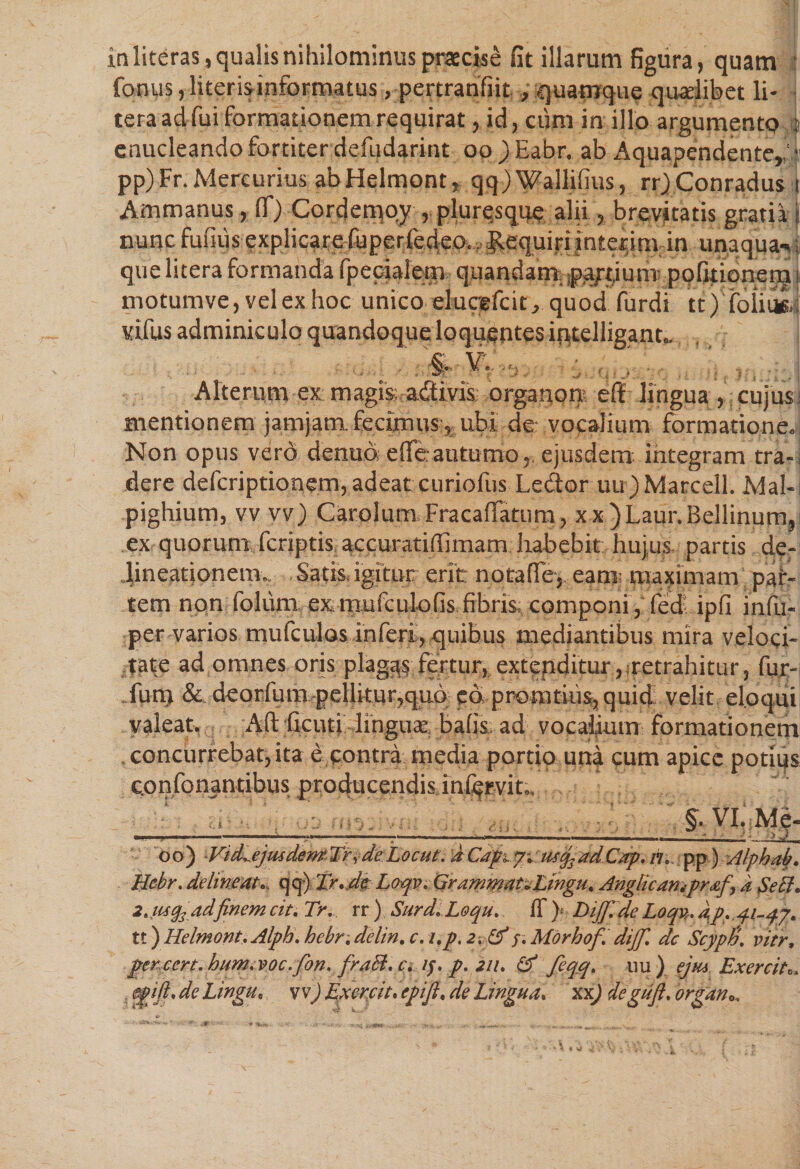 in literas, qualis nihilominus præcisè fit illarum figura, quam
ſonus, literis informatus, pertranſiit, quamque quælibet li-
tera ad ſui formationem requirat, id, cùm in illo argumento
enucleando fortiter deſudarint oo) Fabr. ab Aquapendente,
pp) Fr. Mercurius ab Helmont, qq) Walliſius, rr) Conradus
Ammanus, ſſ) Cordemoy, pluresque alii, brevitatis gratiâ
nunc fuſiùs explicare ſuperſedeo. Requiri interim in unaqua-
que litera formanda ſpecialem quandam partium poſitionem
motumve, vel ex hoc unico eluceſcit, quod ſurdi tt) ſolius
viſus adminiculo quandoque loquentes intelligant.
§. V.
Alterum ex magis activis organon eſt lingua, cujus
mentionem jamjam fecimus, ubi de vocalium formatione.
Non opus verò denuò eſſe autumo, ejusdem integram tra-
dere deſcriptionem, adeat curioſus Lector uu) Marcell. Mal-
pighium, vv vv) Carolum Fracaſſatum, xx) Laur. Bellinum,
ex quorum ſcriptis accuratiſſimam habebit hujus partis de-
lineationem. Satis igitur erit notaſſe, eam maximam par-
tem non ſolùm ex muſculoſis fibris componi, ſed ipſi inſu-
per varios muſculos inſeri, quibus mediantibus mira veloci-
tate ad omnes oris plagas fertur, extenditur, retrahitur, ſur-
ſum & deorſum pellitur, quò eò promtiùs, quid velit eloqui
valeat. Aſt ſicuti linguæ baſis ad vocalium formationem
concurrebat, ita è contrà media portio unà cum apice potiùs
conſonantibus producendis inſervit.
§. VI. Me-
oo) Vid. ejusdem Tr. de Locut. à Cap. 7. usq; ad Cap. 11. pp) Alphab.
Hebr. delineat. qq) Tr. de Loqv. Grammat. Lingu. Anglican. præf, à Sect.
2. usq; ad finem cit. Tr. rr) Surd. Loqu. ſſ) Diſſ. de Loqv. àp. 41-47.
tt) Helmont. Alph. hebr. delin. c. 1. p. 2. & 5. Morhof. diſſ. de Scyph. vitr.
per cert. hum. voc. ſon. fract. c. 15. p. 211. & ſeqq. uu) ejus Exercit.
epiſt. de Lingu. vv) Exercit. epiſt. de Lingua. xx) de guſt. organ.